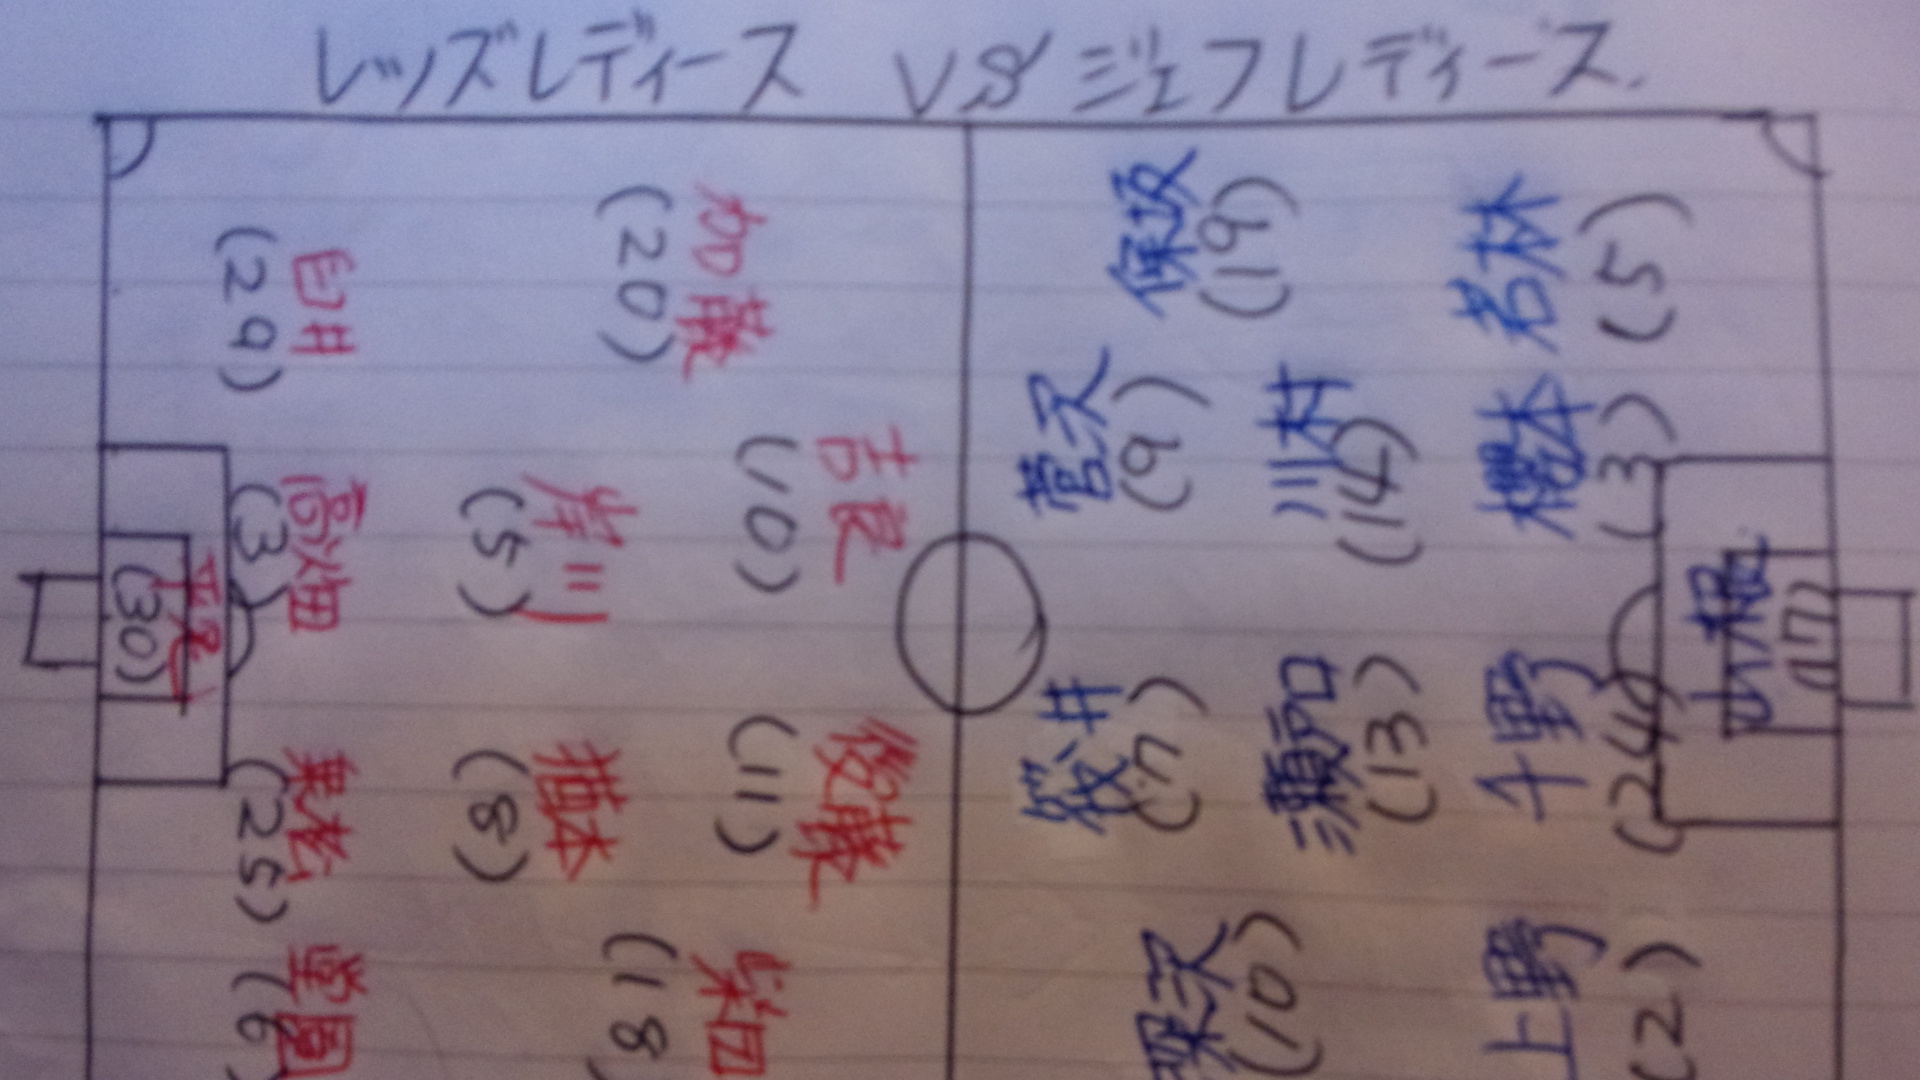 レッズレディース VS ジェフレディース
加藤
(20)
臼井
(29)
吉良
(10)
岸川
(5)
高畑
(3)
平尾
(30)
後藤
(11)
猶本
(8)
乗松
(25)
柴田
(18
堂園
(6)
保坂
(19)
若林
(5)
菅沢
(9)
川村
(14)
櫻本
(3)
山根
(17)
筏井
(7)
瀬戸口
(13)
千野
(24)
深沢
(10)
上野
(2)